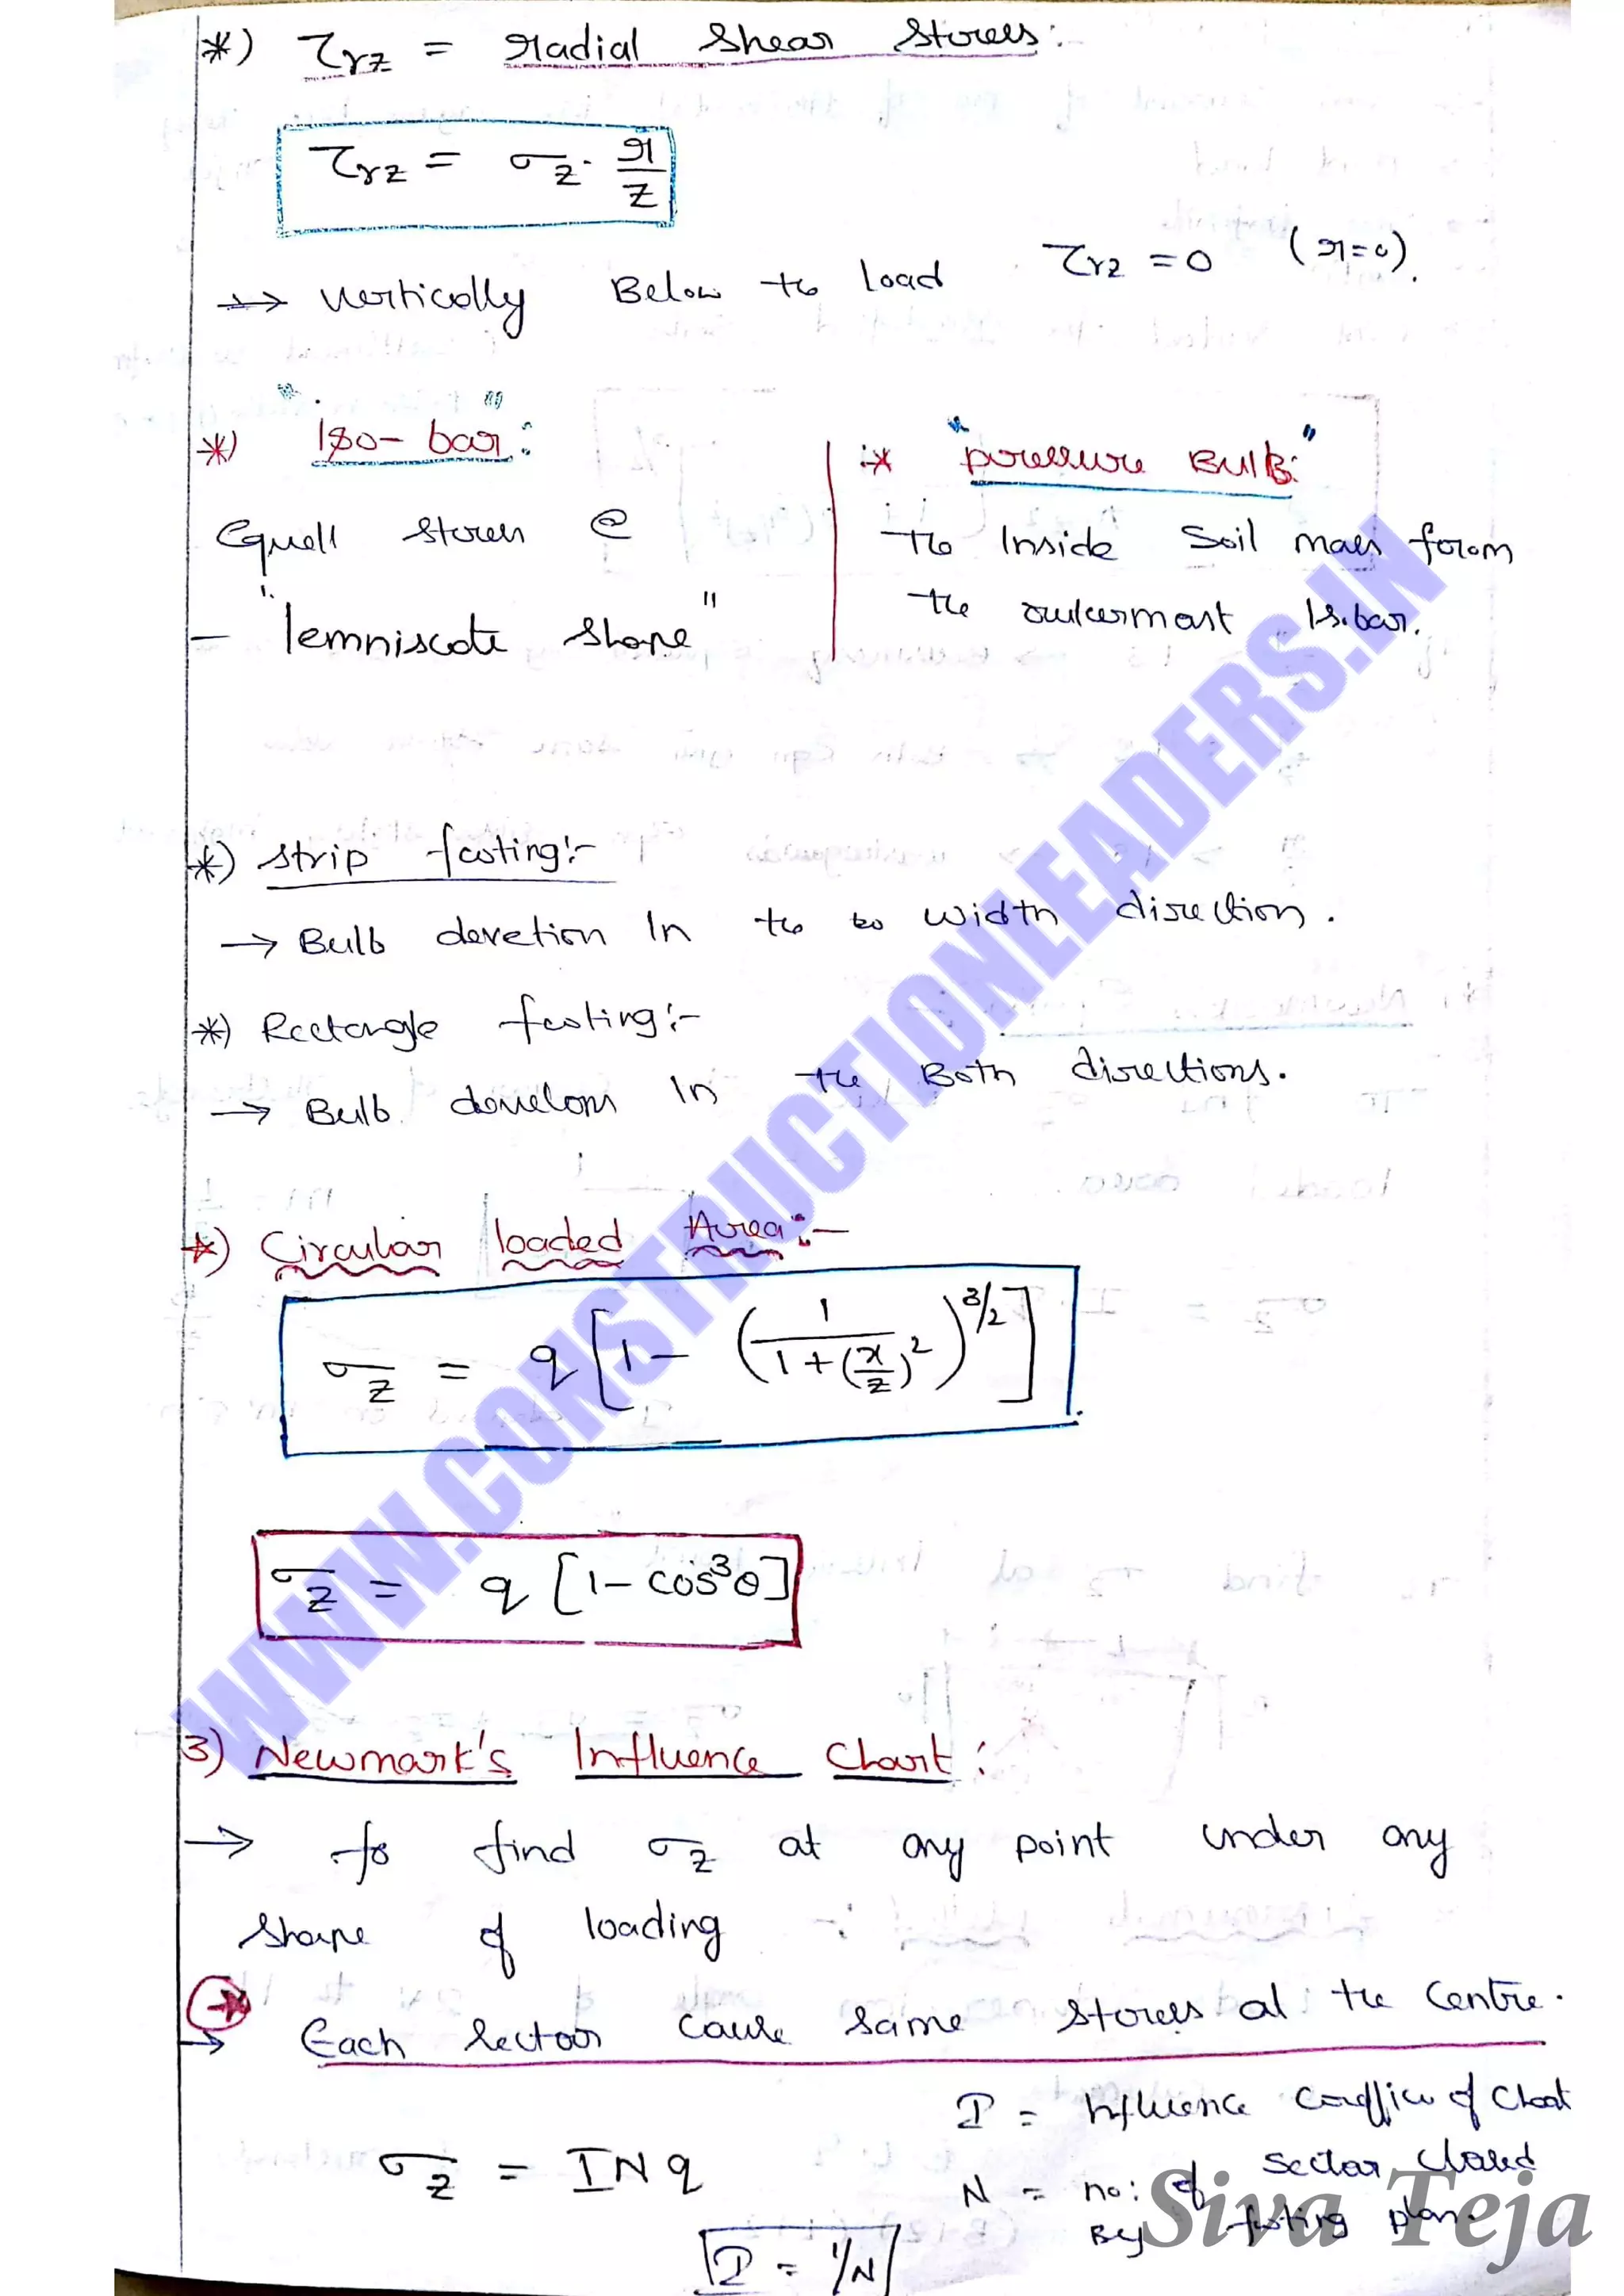 *) τrz = radial shear stress:-
τrz = σz · r/z
→ vertically Below the load τrz = 0 (r=0).
*) "Iso-bar":
Equall stress @
- "lemniscate shape"
* "pressure Bulb:"
The Inside Soil mass from
the outermost Is.bar.
*) Strip footing:-
→ Bulb In the to width direction.
*) Rectangle footing:-
→ Bulb develops In the Both directions.
*) Circular loaded Area:-
σz = q [1 - (1/(1+(r/z)²))^3/2]
σz = q [1 - cos³θ]
3) Newmark's Influence Chart:
→ to find σz at any point under any
shape of loading
→ Each sector cause same stress at the Centre.
σz = INq
I = Influence of Chart
N = no: of sector
By footing plan.
I = 1/N
WWW.CONSTRUCTIONLEADERS.IN
Siva Teja